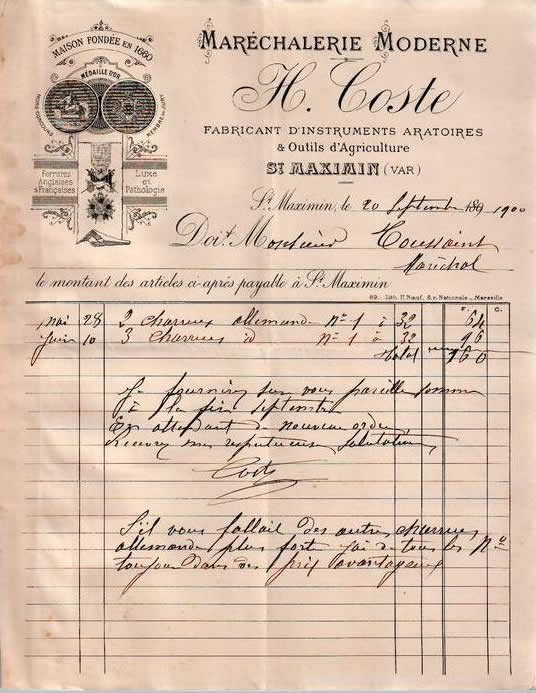 MAISON FONDÉE EN 1660
MÉDAILLE D'OR
HORS CONCOURS
MEMBRE DU JURY
Ferrures
Anglaises
& Françaises
Luxe
et
Pathologie
MARÉCHALERIE MODERNE
H. Coste
FABRICANT D'INSTRUMENTS ARATOIRES
& Outils d'Agriculture
ST MAXIMIN (VAR)
St Maximin, le 20 Septembre 189 1900
Doit Monsieur Toussaint
Maréchal
le montant des articles ci-après payable à St Maximin
69. Lith. F. Nœuf, 8, r. Nationale _ Marseille
F. C.
mai 28 2 charrues allemande No 1 à 32 64
Juin 10 3 charrues id No 1 à 32 96
Total 160
Je fournirai sur vous pareille somme
à la fin septembre
En attendant de nouveau ordre
Recevez mes respectueuses salutations
Coste
S'il vous fallait des autres charrues
allemande plus fort j'ai de tous les No
toujour dans des prix avantageux